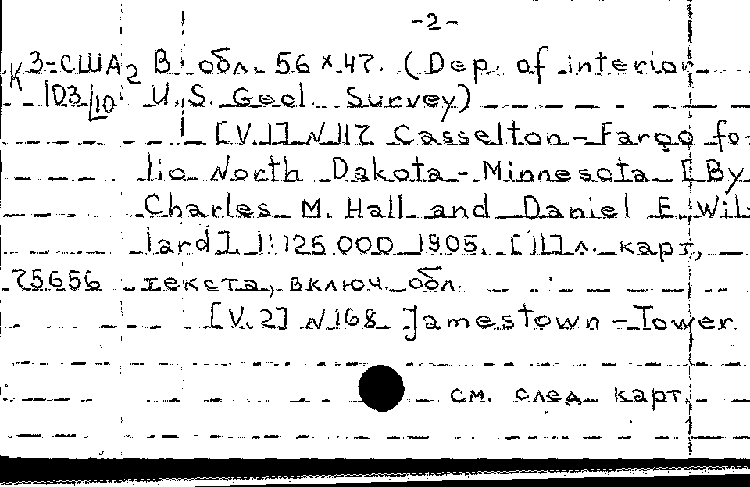 -2-
К 3-США2 В обл. 56 x 47. (Dep. of interior
103/10 U.S. Geol. Survey)
[V.1] N 117 Casselton-Fargo fo-
lio North Dakota-Minnesota [By
Charles M. Hall and Daniel E. Wil-
lard]. 1:125 000 1905. [11] л. карт,
75656 текста, включ. обл.
[V.2] N 168 Jamestown-Tower
см. след. карт.